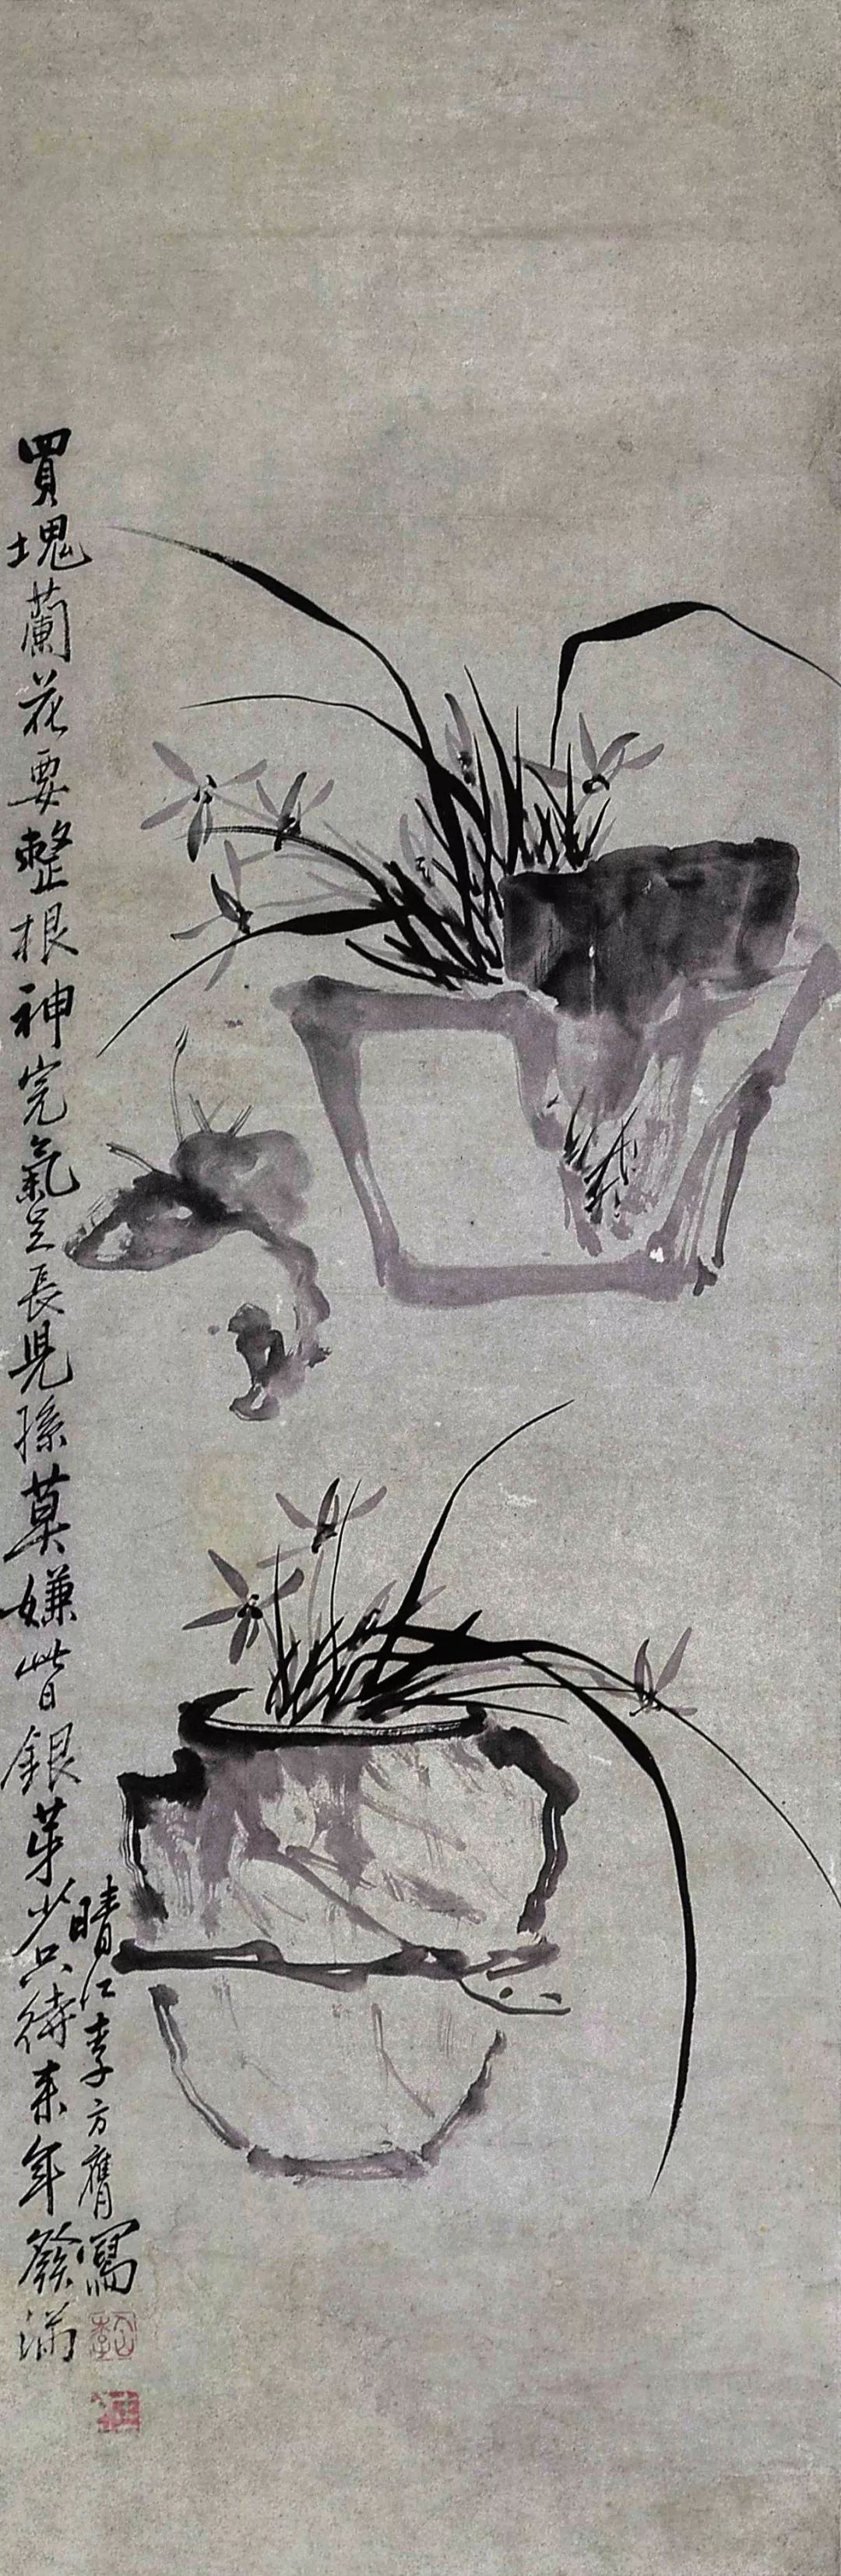 買塊蘭花要整根神完氣足長兒孫莫嫌昔銀芽少只待來年發滿
晴江李方膺寫